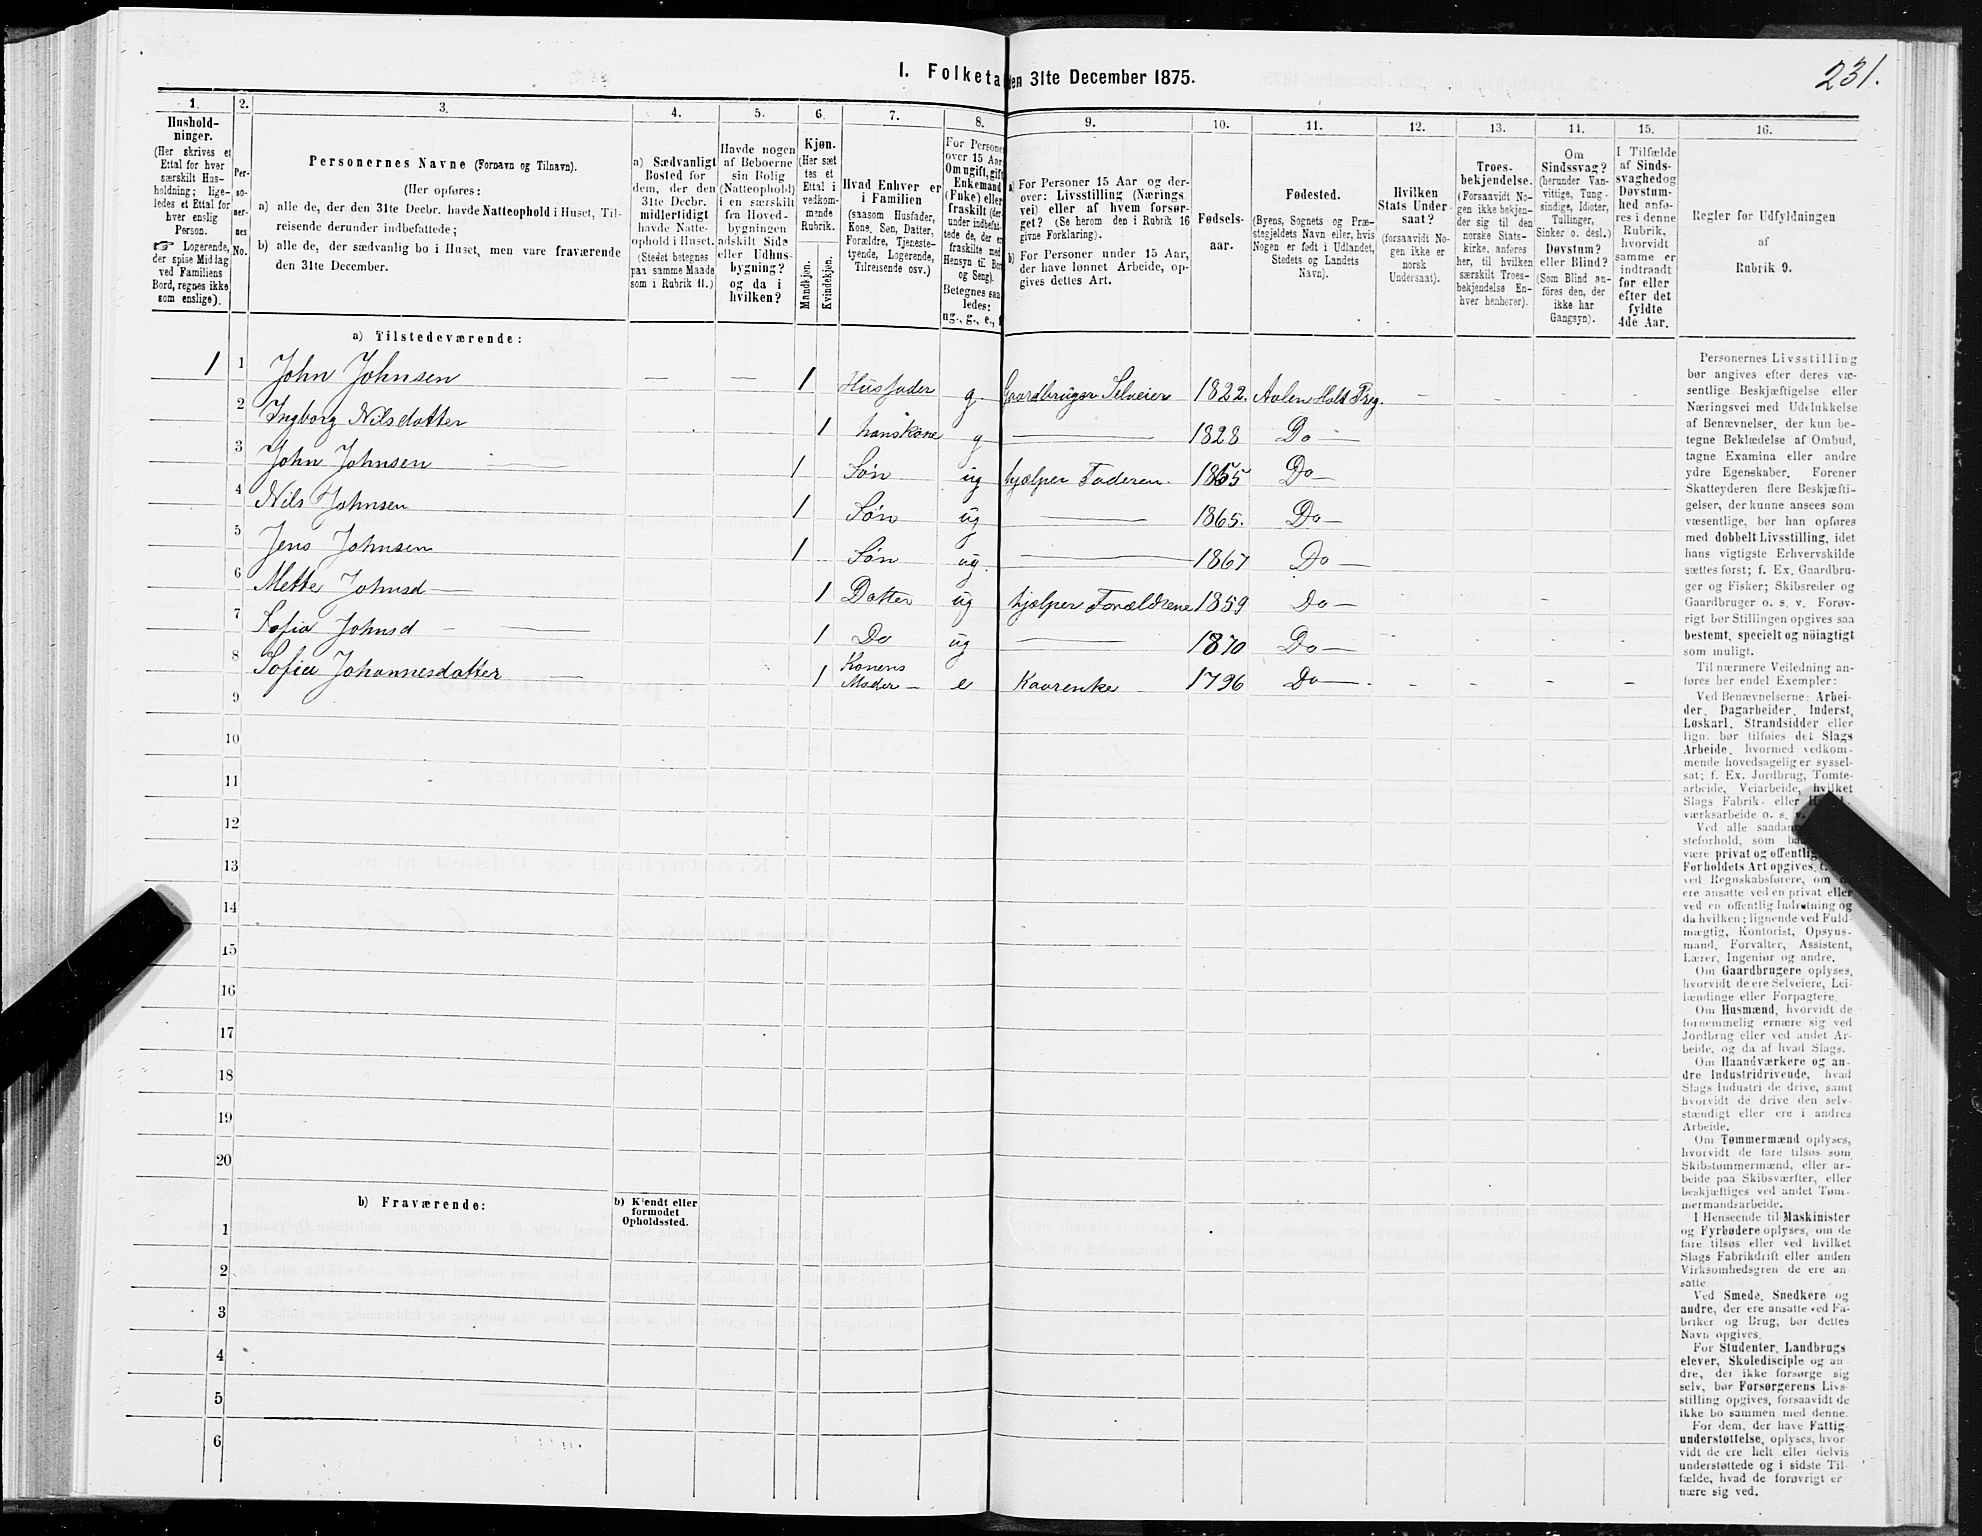 231.
I. Folketa
den 31te December 1875.
1.
Hushold-
ninger.
(Her skrives et
Ettal for hver
særskilt Hus-
holdning; lige-
ledes et Ettal for
hver enslig
Person.
☞ Logerende,
der spise Middag
ved Familiens
Bord, regnes ikke
som enslige).
2.
Per-
so-
ner-
nes
No.
3.
Personernes Navne (Fornavn og Tilnavn).
(Her opføres:
a) alle de, der den 31te Decbr. havde Natteophold i Huset, Til-
reisende derunder indbefattede;
b) alle de, der sædvanlig bo i Huset, men vare fraværende
den 31te December.
4.
a) Sædvanligt
Bosted for
dem, der den
31te Decbr.
midlertidigt
havde Natte-
ophold i Huset.
(Stedet betegnes
paa samme Maade
som i Rubrik 11.)
5.
Havde nogen
af Beboerne
sin Bolig
(Natteophold)
i en særskilt
fra Hoved-
bygningen
adskilt Side
eller Udhus-
bygning?
og da i
hvilken?
6.
Kjøn.
(Her sæt
tes et
Ettal i
vedkom-
mende
Rubrik.
Mandkjøn.
Kvindekjøn.
7.
Hvad Enhver er
i Familien
(saasom Husfader,
Kone, Søn, Datter,
Forældre, Tjeneste-
tyende, Logerende,
Tilreisende osv.)
8.
For Persone
over 15 Aar
Om ugift, gift
Enkemand
(Fnke) eller
fraskilt (der
under indbefat-
tede de, der er
fraskilte med
Hensyn til Bord
og Seng).
Betegnes saa
ledes:
ug., g., e., f.
9.
a) For Personer 15 Aar og der-
over: Livsstilling (Nærings
vei) eller af hvem forsør-
get? (Se herom den i Rubrik 16
givne Forklaring).
b) For Personer under 15 Aar,
der have lønnet Arbeide, op-
gives dettes Art.
10.
Fødsels-
aar.
11.
Fødested.
(Byens, Sognets og Præ-
stegjeldets Navn eller, hvis
Nogen er født i Udlandet,
Stedets og Landets
Navn).
12.
Hvilken
Stats Under-
saat?
(forsaavidt No-
gen ikke er
norsk
Undersaat).
13.
Troes-
bekjendelse.
(Forsaavidt No-
gen ikke bekjen-
der sig til den
norske Stats-
kirke, anføres
her, til hvilken
særskilt Troes-
bekjendelse En-
hver henhører).
14.
Om
Sindssvag?
(herunder Van-
vittige, Tung-
sindige, Idioter,
Tullinger,
Sinker o. desl.)
Døvstum?
eller Blind?
(Som Blind an-
føres den, der
ikke har
Gangsyn).
15.
I Tilfælde
af Sinds-
svaghed og
Døvstum-
hed anfø-
res i denne
Rubrik,
hvorvidt
samme er
indtraadt
før eller
efter det
fyldte
4de Aar.
16.
Regler for Udfyldningen
af
Rubrik 9.
a) Tilstedeværende:
1 1 John Johnsen — — 1 Husfader g. Gaardbruger Selveier 1822. Aalen Holt Præg. -
2 Ingborg Nilsdatter 1 hans kone g — 1828 Do —
3 John Johnsen — 1 Søn ug hjælper Faderen. 1855 Do —
4 Nils Johnsen 1 Søn ug — 1865. Do —
5 Jens Johnsen 1 Søn ug. — 1867 Do —
6 Mette Johnsd — 1 Datter ug hjælper Forældrene 1859 Do —
7 Sofia Johnsd - — 1 Do ug — 1870 Do —
8 Sofia Johannesdatter — 1 Konens
Moder — e Kaarenke 1796 Do — - - - -
9
10
11
12
13
14
15
16
17
18
19
20
b) Fraværende:
b) Kjendt eller
formodet
Opholdssted.
1
2
3
4
5
6
Personernes Livsstilling
bør angives efter deres væ-
sentlige Beskjæftigelse eller
Næringsvei med Udelukkelse
af Benævnelser, der kun be-
tegne Beklædelse af Ombud,
tagne Examina eller andre
ydre Egenskaber. Forener
Skatteyderen flere Beskjæfti-
gelser, der kunne ansees som
væsentlige, bør han opføres
med dobbelt Livsstilling, idet
hans vigtigste Erhvervskilde
sættes først; f. Ex. Gaardbru-
ger og Fisker; Skibsreder og
Gaardbruger o. s. v. Forøv-
rigt bør Stillingen opgives saa
bestemt, specielt og nöiagtigt
som muligt.
Til nærmere Veiledning an-
føres her endel Exempler:
Ved Benævnelserne: Arbei-
der, Dagarbeider, Inderst,
Løskarl, Strandsidder eller
lign. bør tilføies det Slags
Arbeide, hvormed vedkom-
mende hovedsagelig er syssel-
sat; f. Ex. Jordbrug, Tomte-
arbeide, Veiarbeide, hvilket
Slags Fabrik- eller
værksarbeide o. s. v.
Ved alle saadan
steforhold, som
være privat og offentlig,
Forholdets Art opgives,
ved Regnskabsførere, om
ere ansatte ved en privat eller
ved en offentlig Indretning og
da hvilken; lignende ved Fuld-
mægtig, Kontorist, Opsyns-
mand, Forvalter, Assistent,
Lærer, Ingeniør og andre.
Om Gaardbrugere oplyses,
hvorvidt de ere Selveiere, Lei-
lændinge eller Forpagtere.
Om Husmænd, hvorvidt de
fornemmelig ernære sig ved
Jordbrug eller ved andet Ar-
beide, og da af hvad Slags.
Om Haandværkere og an-
dre Industridrivende, hvad
Slags Industri de drive, samt
hvorvidt de drive den selv-
stændigt eller ere i andres
Arbeide.
Om Tømmermænd oplyses,
hvorvidt de fare tilsøs som
Skibstømmermænd, eller ar-
beide paa Skibsværfter, eller
beskjæftiges ved andet Tøm-
mermandsarbeide.
I Henseende til Maskinister
og Fyrbødere oplyses, om de
fare tilsøs eller ved hvilket
Slags Fabrikdrift eller anden
Virksomhedsgren de ere an-
satte.
Ved Smede, Snedkere og
andre, der ere ansatte ved Fa-
briker og Brug, bør dettes
Navn opgives.
For Studenter, Landbrugs
elever, Skoledisciple og an-
dre, der ikke forsørge sig
selv, bør Forsørgerens Livs-
stilling opgives, forsaavidt de
ikke bo sammen med denne.
For dem, der have Fattig-
understøttelse, oplyses, hvor-
vidt de ere helt eller delvis
understøttede og i sidste Til-
fælde, hvad de forøvrigt er
nære sig ved.